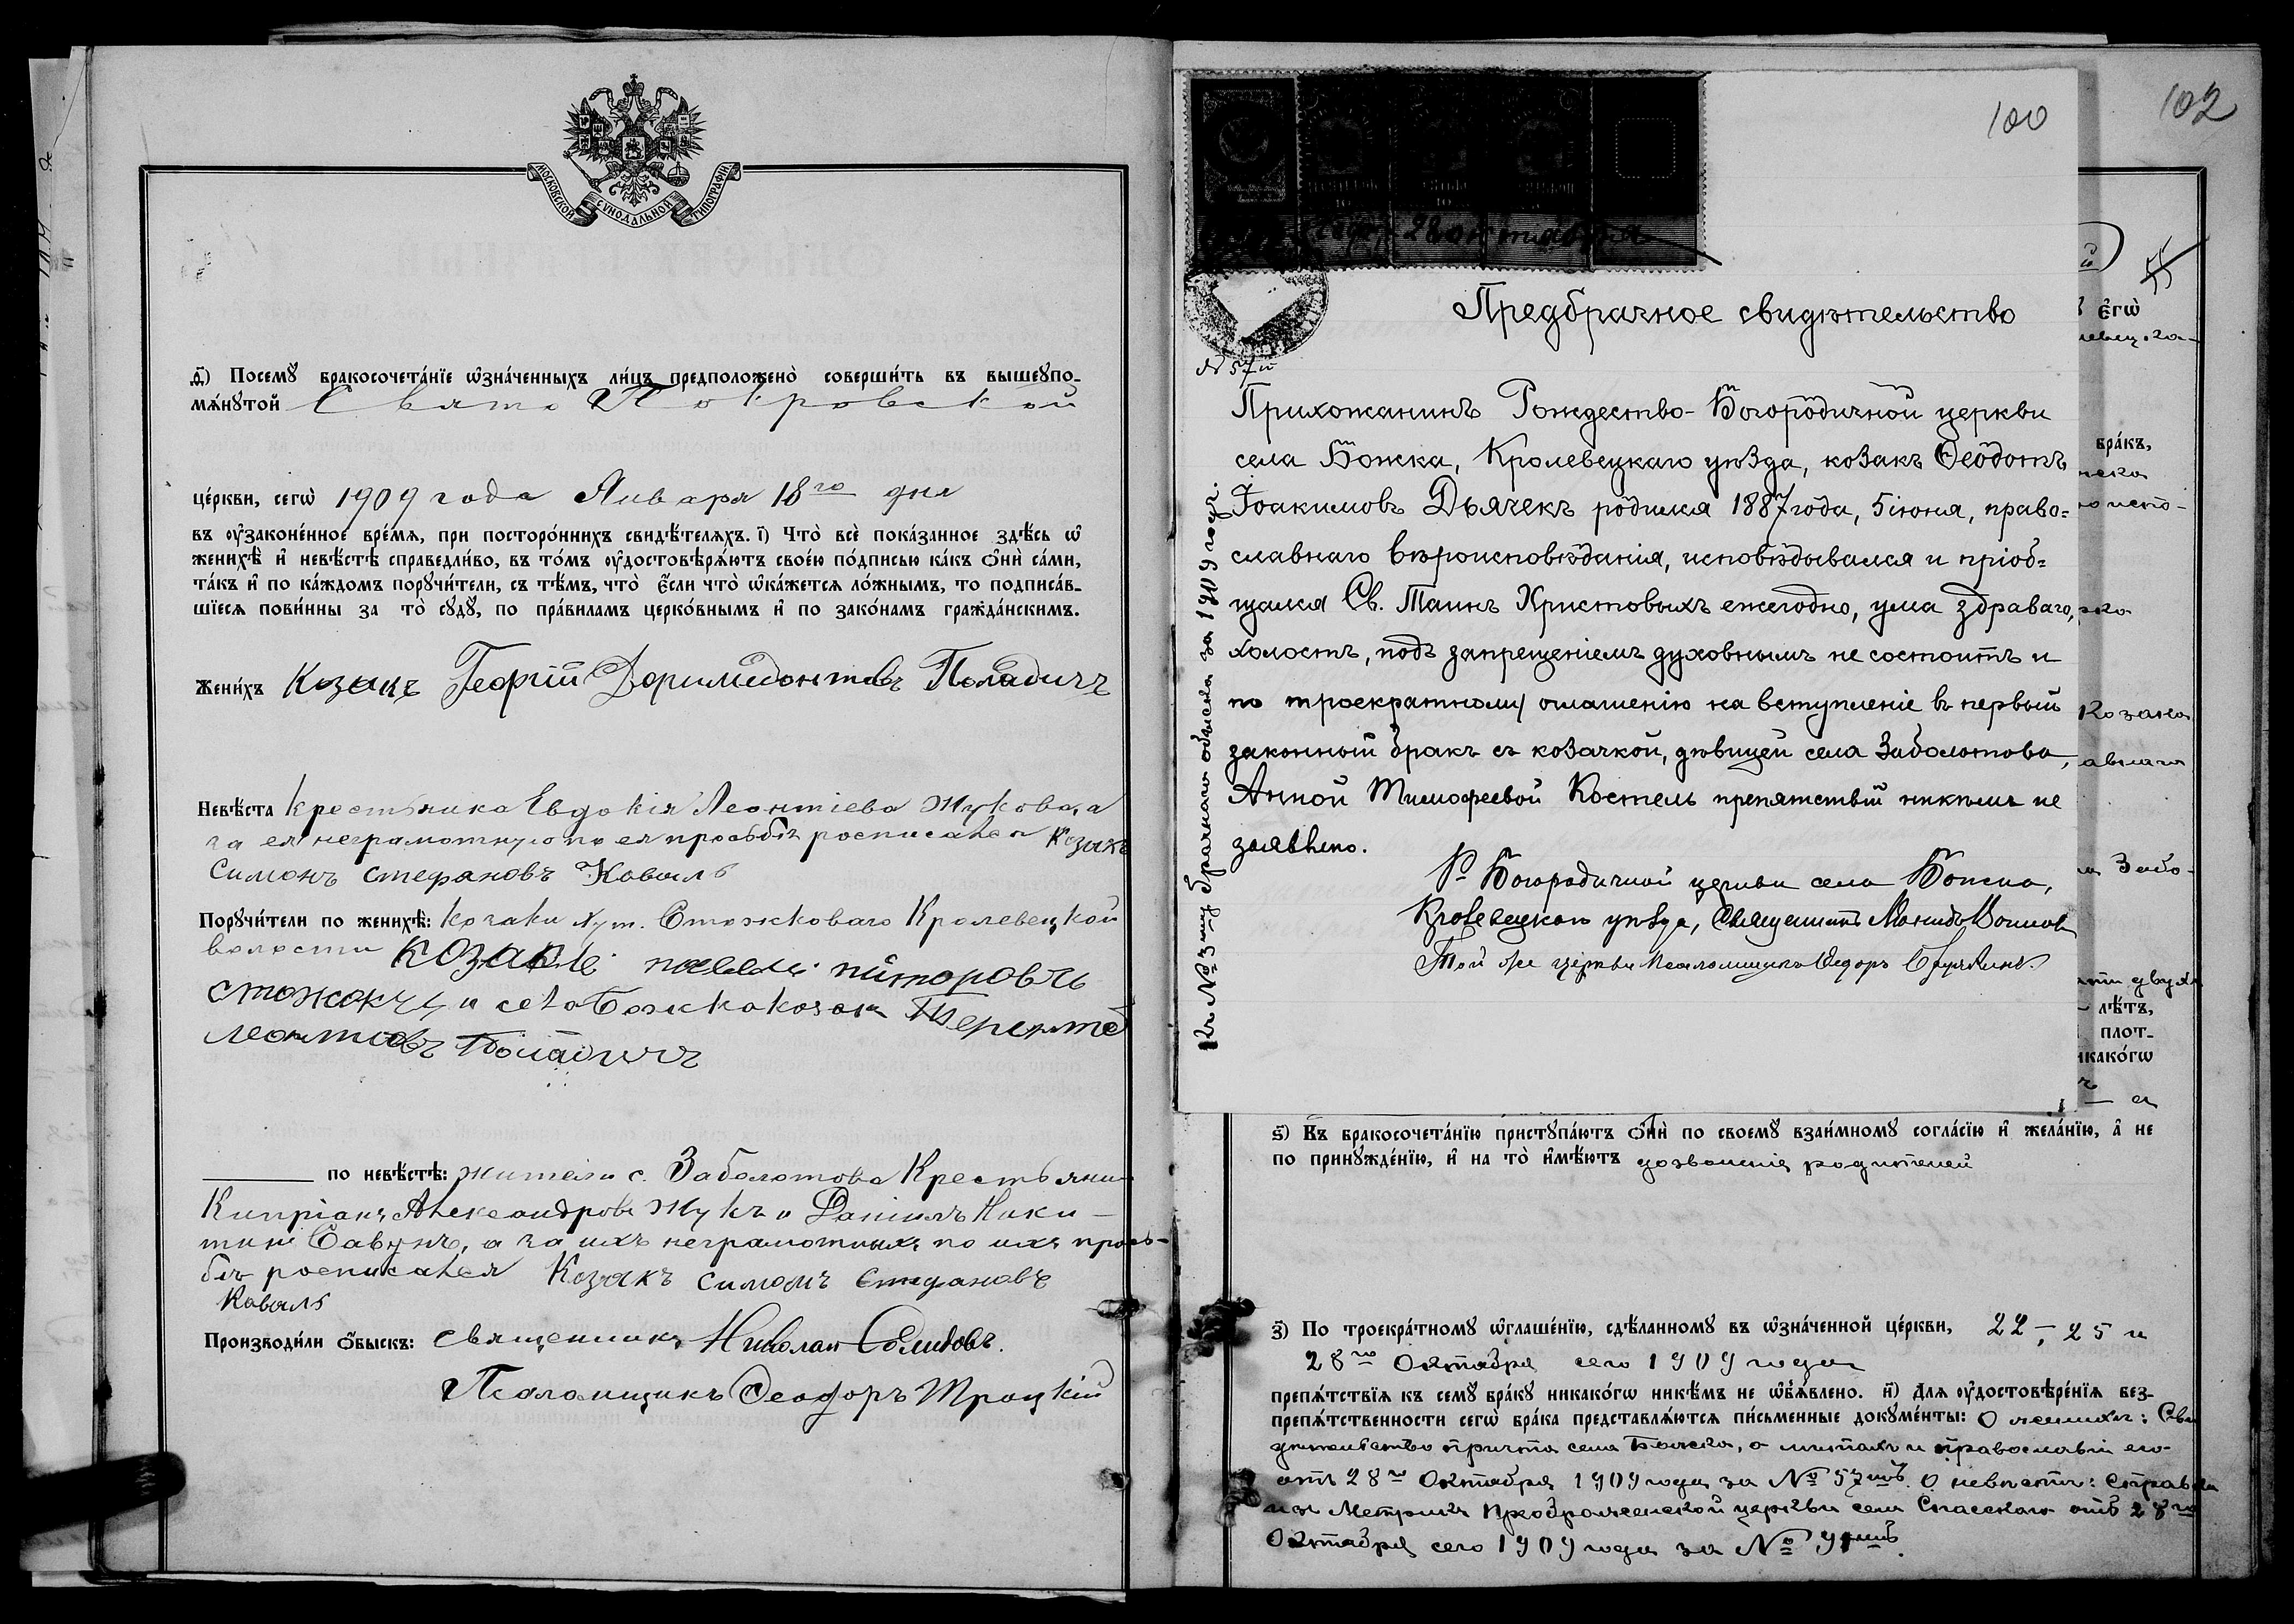 МОСКОВСКОЙ СѴНОДАЛЬНОЙ ТИПОГРАФІИ
Посемꙋ̀ бракосочета́нїе ѡ҆зна́ченныхъ ли́цъ предположено̀ соверши́ть въ вышеꙋпо-
мѧ́нꙋтой Свято Покровской
це́ркви, сегѡ̀ 1909 года Января 18го дня
въ ᲂу҆зако́ненное вре́мѧ, при посторо́ннихъ свидѣ́телѧхъ. і҃) Что̀ всѐ пока́занное здѣ́сь ѡ҆
женихѣ̀ и҆ невѣ́стѣ справедли́во, въ то́мъ ᲂу҆достовѣрѧ́ютъ свое́ю по́дписью ка́къ ѻ҆нѝ са́ми,
та́къ и҆ по ка́ждомъ порꙋчи́тели, съ тѣ́мъ, что̀ є҆́сли что̀ ѡ҆ка́жетсѧ ло́жнымъ, то подписа́в-
шїесѧ пови́нны за то̀ сꙋдꙋ̀, по пра́виламъ церко́внымъ и҆ по зако́намъ гражда́нскимъ.
Жени́хъ Козакъ Георгій Доримедонтовъ Поладичъ
Невѣ́ста крестьянка Евдокія Леонтіева Жукова, а
за ея неграмотную по ея просьбѣ росписался Козакъ
Симонъ Стефановъ Коваль
Порꙋчи́тели по женихѣ̀: козаки хут. Стожковаго Кролевецкой
волости козакъ
стожокъ и села Божка козак
Леонтиевъ
по невѣ́стѣ: жители с. Заболотова Крестьяни
Кипріанъ Александровъ Жукъ и Даніилъ Ники-
тинъ Савунъ, а за ихъ неграмотныхъ по ихъ прось-
бѣ росписался Козакъ Симонъ Стефановъ
Коваль
Производи́ли ѻ҆́быскъ: священникъ Николай
Псаломщикъ Ѳеодоръ Троцкій
100
102
28 октября
Предбрачное свидѣтельство
№ 57й
Прихожанинъ Рождество-Богородичной церкви
села Божка, Кролевецкаго уѣзда, козакъ Ѳеодотъ
Іоакимовъ Дьячекъ родился 1887 года, 5 іюня, право=
славнаго вѣроисповѣданія, исповѣдывался и пріоб=
щался Св. Таинъ Христовыхъ ежегодно, ума здраваго,
холостъ, подъ запрещеніемъ духовнымъ не состоитъ и
по троекратному оглашенію на вступленіе въ первый
законный бракъ съ козачкой, дѣвицей села Заболотова,
Анной Тимофеевой Костель препятствій никѣмъ не
заявлено.
Р. Богородичной церкви села Божка,
Кролевецкаго уѣзда, Священникъ
Той же церкви Псаломщикъ Ѳедоръ
Къ № 3му брачнаго обыска за 1909 годъ.
є҆гѡ̀
бра́къ,
Козака
Забо-
двухъ
лѣ́тъ,
плот-
ѕ҃) Къ бракосочета́нїю пристꙋпа́ютъ ѻ҆нѝ по своемꙋ̀ взаи́мномꙋ согла́сїю и҆ жела́нїю, а҆ не
по принꙋжде́нїю, и҆ на то̀ и҆мѣ́ютъ дозволенія родителей
з҃) По троекра́тномꙋ ѡ҆глаше́нїю, сдѣ́ланномꙋ въ ѡ҆зна́ченной це́ркви, 22, 25 и
28го Октября сего 1909 года
препѧ́тствїѧ къ семꙋ̀ бра́кꙋ никако́гѡ никѣ́мъ не ѡ҆б̾ѧ́влено. и҃) Длѧ ᲂу҆достовѣре́нїѧ без-
препѧ́тственности сегѡ̀ бра́ка представлѧ́ютсѧ пи́сьменные докꙋме́нты: О женихѣ: Сви
дѣтельство причта села Божка, о лѣтахъ и православіи его
отъ 28го Октября 1909 года за № 57мъ. О невѣстѣ: справка
изъ Метрикъ Преображенской церкви села Спасскаго отъ 28го
Октября сего 1909 года за №